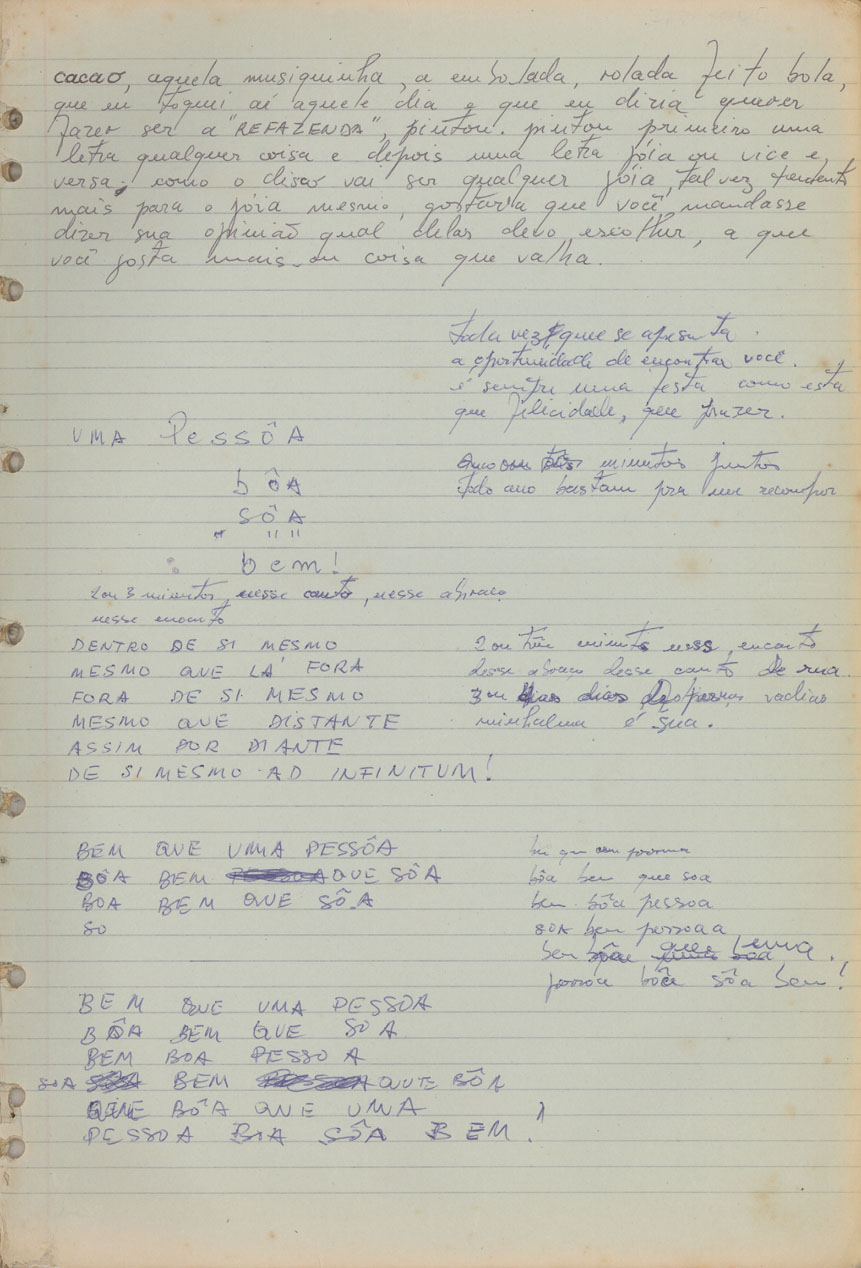 cacao, aquela musiquinha, a embolada, rolada feito bola,
que eu toquei aí aquele dia e que eu diria querer
fazer ser a "REFAZENDA", pintou. pintou primeiro uma
letra qualquer coisa e depois uma letra jóia ou vice e
versa; como o disco vai ser qualquer jóia, talvez tendente
mais para o jóia mesmo, gostaria que você mandasse
dizer sua opinião qual delas devo escolher, a que
você gosta mais ou coisa que valha.
toda vez que se apresenta
a oportunidade de encontrar você.
é sempre uma festa como esta
que felicidade, que prazer.
UMA PESSÔA
bÔA
SÔA
" "
bem!
minutos juntos
todo ano bastam pra me recompor
2 ou 3 minutos, nesse canto, nesse abraço
nesse encanto
DENTRO DE SI MESMO
MESMO QUE LÁ FORA
FORA DE SI MESMO
MESMO QUE DISTANTE
ASSIM POR DIANTE
DE SI MESMO AD INFINITUM!
2 ou três minutos encanto
desse abraço desse canto de rua
3 ou dias vadias
minhalma é sua.
BEM QUE UMA PESSÔA
BÔA BEM QUE SÔA
BOA BEM QUE SÔA
SO
que uma pessoa
bôa bem que soa
bem bôa pessoa
SOA bem pessoa a
bem que uma
pessoa bôa sôa bem!
BEM QUE UMA PESSOA
BÔA BEM QUE SOA
BEM BOA PESSOA
SOA BEM QUE BÔA
QUE BÔA QUE UMA
PESSOA BOA SÔA BEM!